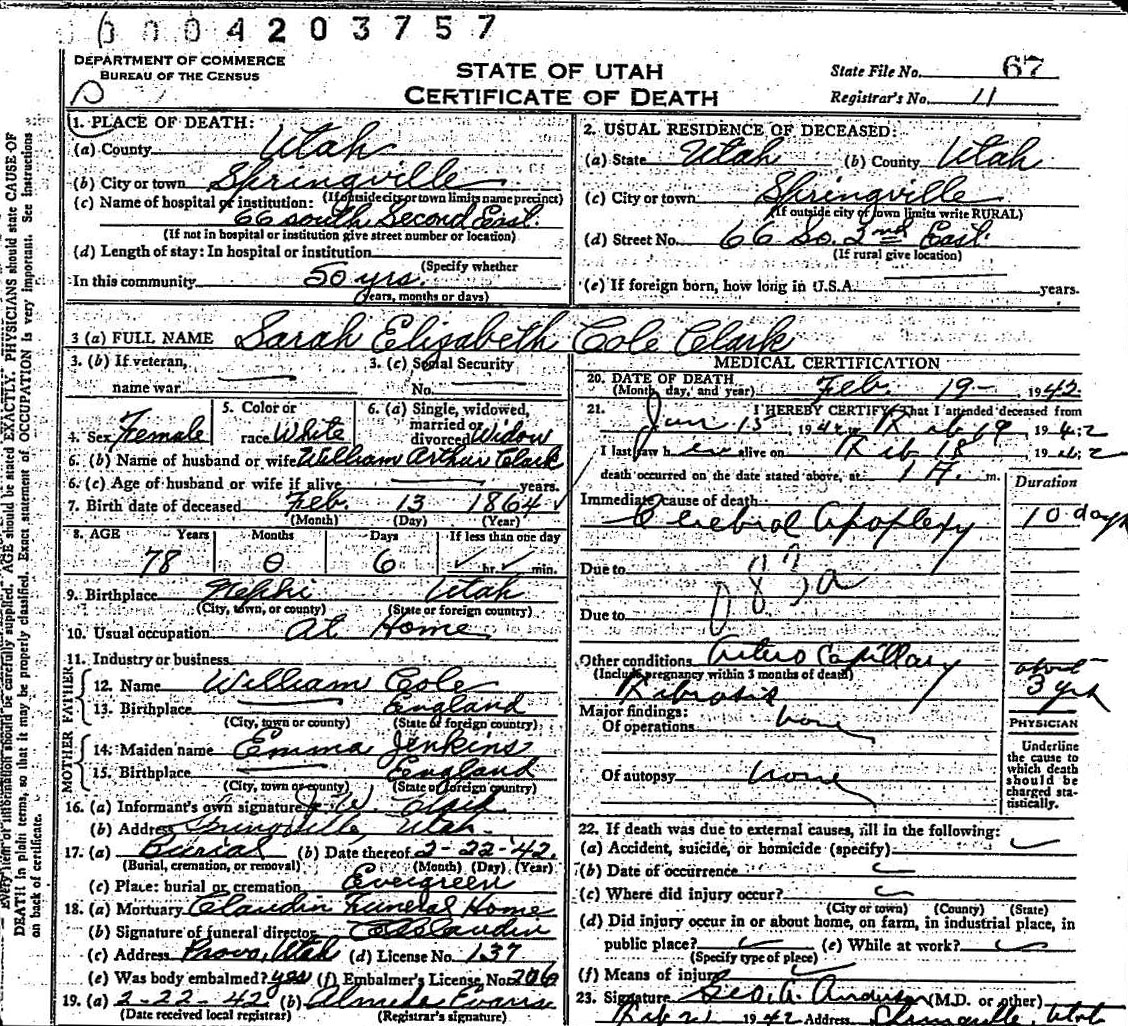 0004203757
DEPARTMENT OF COMMERCE
BUREAU OF THE CENSUS
STATE OF UTAH
CERTIFICATE OF DEATH
State File No. 67
Registrar's No. 11
1. PLACE OF DEATH:
(a) County Utah
(b) City or town Springville
(If outside city or town limits name precinct)
(c) Name of hospital or institution:
66 south Second East.
(If not in hospital or institution give street number or location)
(d) Length of stay: In hospital or institution
(Specify whether
In this community 50 yrs.
years, months or days)
2. USUAL RESIDENCE OF DECEASED:
(a) State Utah (b) County Utah
(c) City or town Springville
(If outside city or town limits write RURAL)
(d) Street No. 66 So. 2nd East.
(If rural give location)
(e) If foreign born, how long in U.S.A. years.
3 (a) FULL NAME Sarah Elisabeth Cole Clark
3. (b) If veteran,
name war
3. (c) Social Security
No.
4. Sex Female
5. Color or
race White
6. (a) Single, widowed,
married or
divorced Widow
6. (b) Name of husband or wife William Arthur Clark
6. (c) Age of husband or wife if alive years.
7. Birth date of deceased Feb. 13 1864
(Month) (Day) (Year)
8. AGE Years Months Days If less than one day
78 0 6 hr. min.
9. Birthplace Nephi Utah
(City, town, or county) (State or foreign country)
10. Usual occupation At Home
11. Industry or business
FATHER
12. Name William Cole
13. Birthplace England
(City, town or county) (State or foreign country)
MOTHER
14. Maiden name Emma Jenkins
15. Birthplace England
(City, town or county) (State or foreign country)
16. (a) Informant's own signature Clark
(b) Address Springville, Utah.
17. (a) Burial (b) Date thereof 2-22-42.
(Burial, cremation, or removal) (Month) (Day) (Year)
(c) Place: burial or cremation Evergreen
18. (a) Mortuary Claudin Funeral Home
(b) Signature of funeral director Claudin
(c) Address Provo, Utah (d) License No. 137
(e) Was body embalmed? yes (f) Embalmer's License No. 206
19. (a) 2-22-42 (b) Almeda Evans
(Date received local registrar) (Registrar's signature)
MEDICAL CERTIFICATION
20. DATE OF DEATH
(Month, day, and year) Feb. 19- 1942
21. I HEREBY CERTIFY That I attended deceased from
Jan 15 1942 to Feb 19 1942
I last saw her alive on Feb 18 1942
death occurred on the date stated above, at 1 A. m.
Duration
Immediate cause of death
Cerebral Apoplexy 10 days
Due to
83a
Due to
Other conditions Artero Capillary
(Include pregnancy within 3 months of death)
Fibrosis
about
3 yrs
Major findings:
Of operations none
Of autopsy none
PHYSICIAN
Underline
the cause to
which death
should be
charged sta-
tistically.
22. If death was due to external causes, fill in the following:
(a) Accident, suicide, or homicide (specify)
(b) Date of occurrence
(c) Where did injury occur?
(City or town) (County) (State)
(d) Did injury occur in or about home, on farm, in industrial place, in
public place? (e) While at work?
(Specify type of place)
(f) Means of injury
23. Signature Geo. A. Anderson (M.D. or other)
Feb 21 1942 Address Springville, Utah
DEATH in plain terms, so that it may be properly classified. Exact statement of OCCUPATION is very important. See instructions
on back of certificate.
Every item of information should be carefully supplied. AGE should be stated EXACTLY. PHYSICIANS should state CAUSE OF